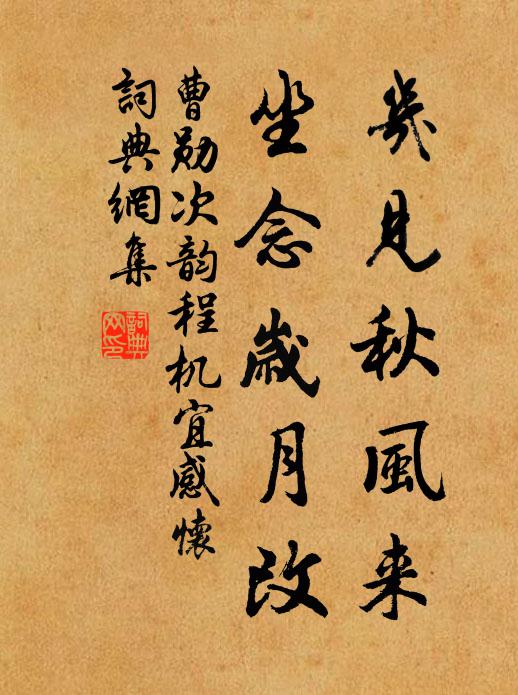 幾見秋風来
坐念歲月改
曹勛次韵程机宜感懷
詞典網集
詞典网印